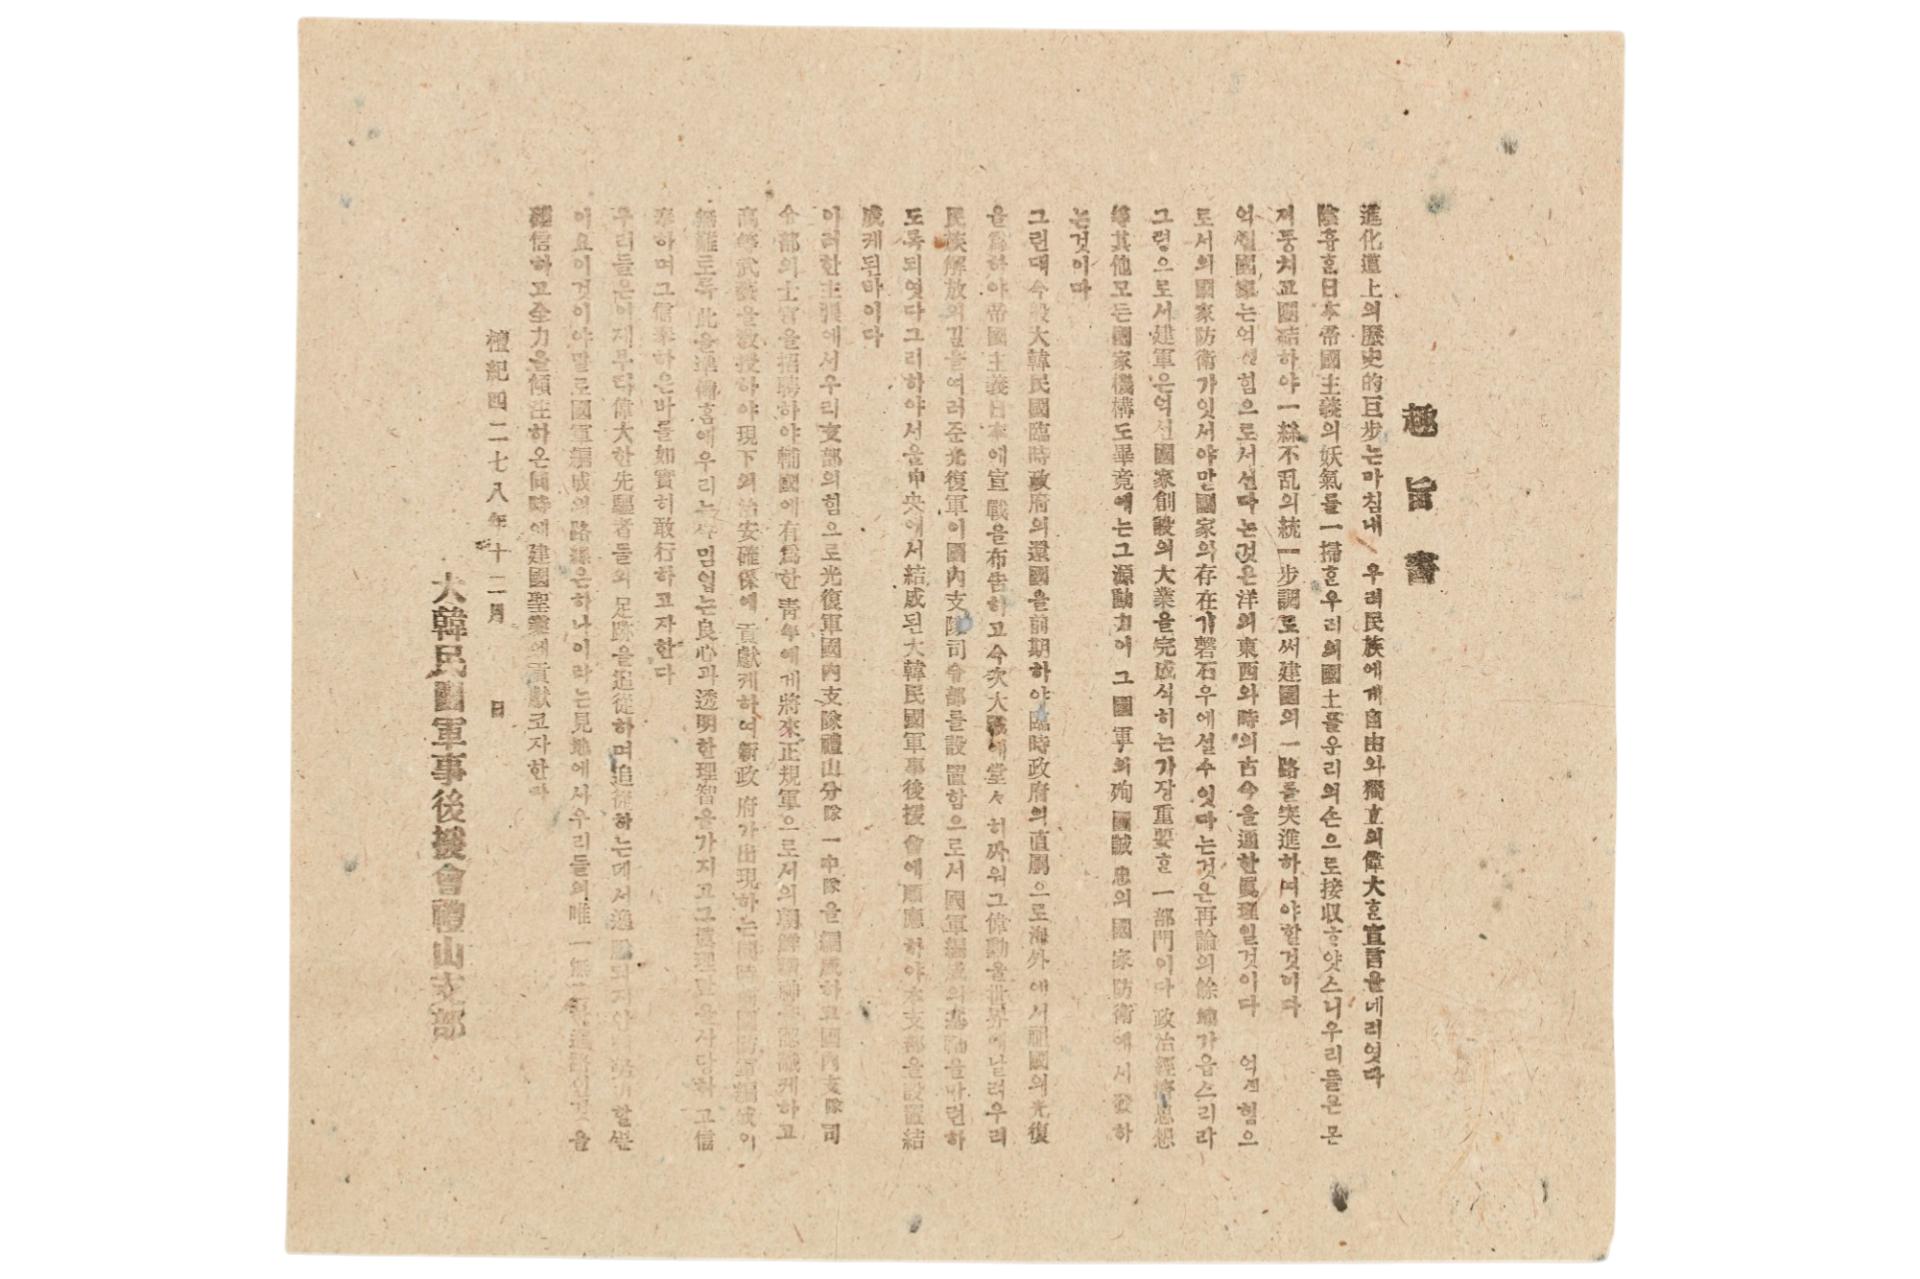 趣旨書
進化道上의歷史的巨步는마침내 우리民族에게自由와獨立의偉大한宣言을네리엿다
陰흉한日本帝國主義의妖氣를一掃한우리의國土를우리의손으로接収하얏스니우리들은몬
져둥치고團結하야一絲不乱의統一步調로써建國의一路를突進하여야할것이다
억쎈國家는억센힘으로서선다는것은洋의東西와時의古今을通한眞理일것이다 억센힘으
로서의國家防衛가잇서야만國家의存在가磐石우에설수잇다는것은再論의餘地가읍스리라
그렴으로서建軍은억센國家創設의大業을完成식히는가장重要한一部門이다政治經濟思想
等其他모든國家機構도畢竟에는그源動力이 그國軍의殉國誠忠의國家防衛에서發하
는것이다
그런대今般大韓民國臨時政府의還國을前期하야臨時政府의直屬으로海外에서祖國의光復
을爲하야帝國主義日本에宣戰을布告하고今次大戰에堂々히싸워그偉勳을世界에날려우리
民族解放의길을여러준光復軍이國內支隊司令部를設置함으로서國軍編成의基軸을마련하
도록되엿다그리하야서울中央에서結成된大韓民國軍事後援會에順應하야本支部을設置結
成케된바이다
이러한主張에서우리支部의힘으로光復軍國內支隊禮山分隊一中隊을編成하고國內支隊司
令部의士官을招聘하야輔國에有爲한靑年에게將來正規軍으로서의朝鮮精神을認識케하고
高等武藝을敎授하야現下의治安確保에貢獻케하여新政府가出現하는同時國防軍編成이
無難로록此을準備홈에우리는 밈업는良心과透明한理智을가지고그眞理만을사당하고信
奉하며그信奉하은바를如實히敢行하고자한다
우리들은이제부다偉大한先驅者들의足跡을追從하며追從하는데서 할뿐
이요이것이야말로國軍編成의路線은하나이라는見地에서우리들의唯一無二한道路인것을
確信하고全力을傾注하은同時에建國聖業에貢獻코자한다
檀紀四二七八年十二月 日
大韓民國軍事後援會禮山支部